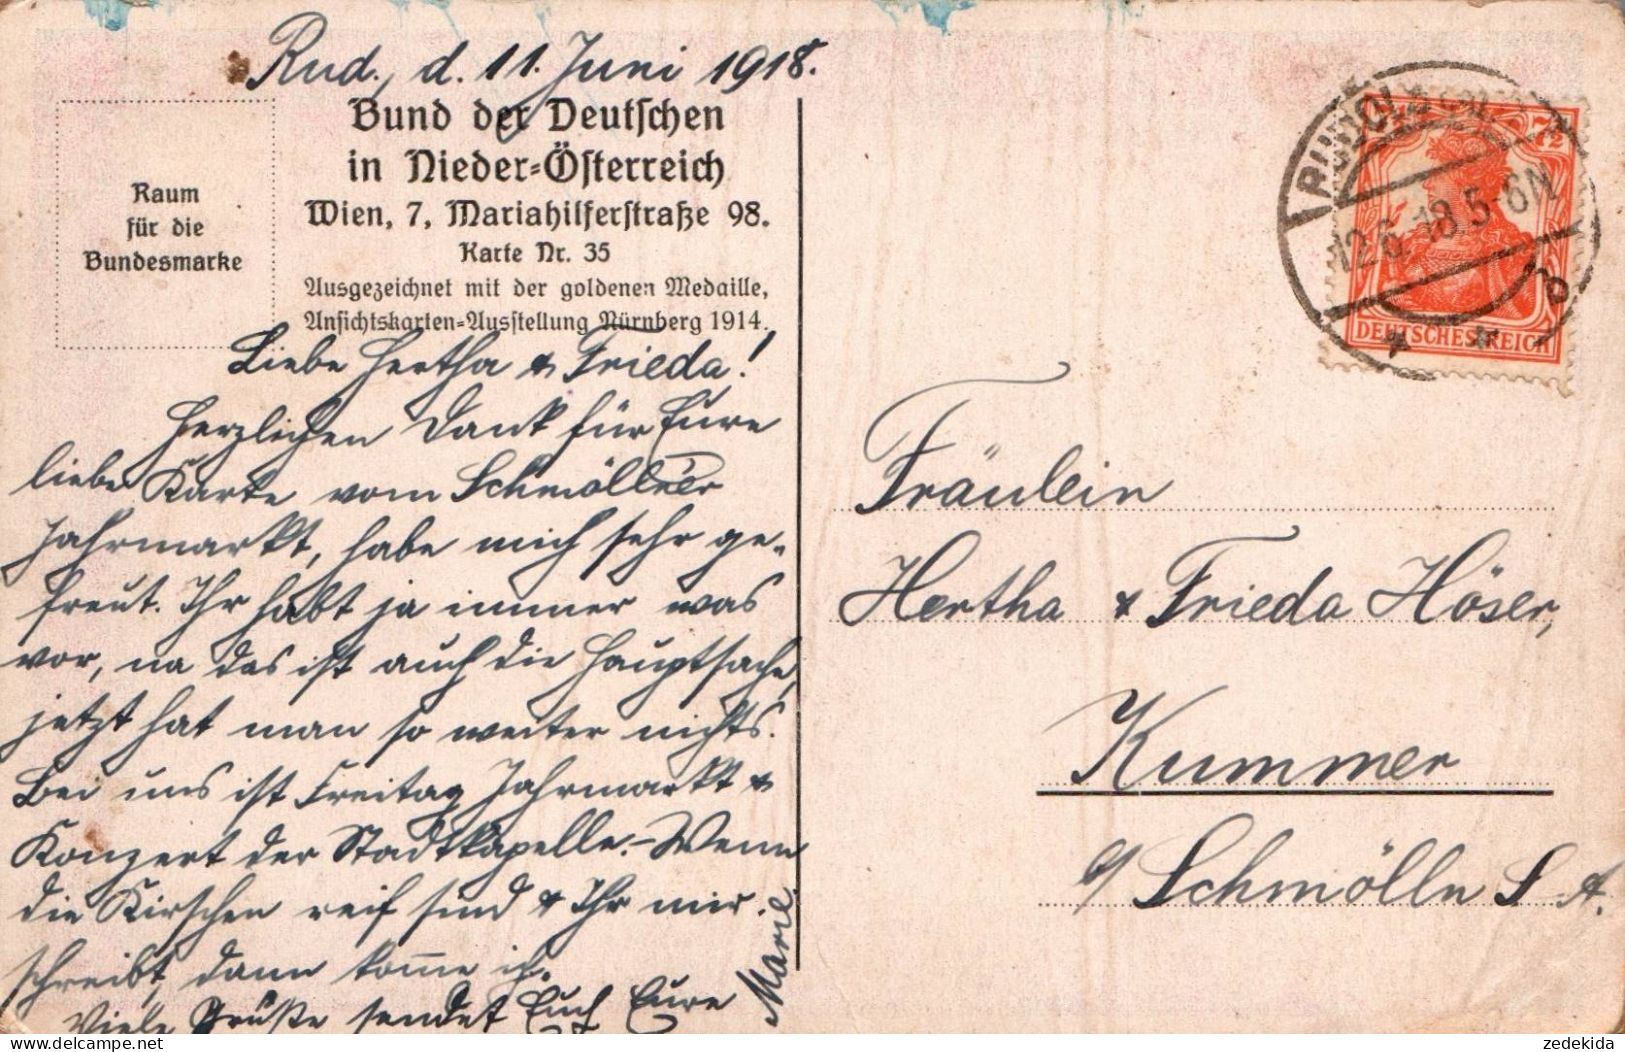 Rud., d. 11. Juni 1918.
Bund der Deutschen
in Nieder=Österreich
Wien, 7, Mariahilferstraße 98.
Karte Nr. 35
Ausgezeichnet mit der goldenen Medaille,
Ansichtskarten=Ausstellung Nürnberg 1914.
Raum
für die
Bundesmarke
Liebe Hertha & Frieda!
Herzlichen Dank für Eure
liebe Karte vom Schmöllner
Jahrmarkt, habe mich sehr ge-
freut. Ihr habt ja immer was
vor, na das ist auch die Hauptsache,
jetzt hat man so weiter nichts.
Bei uns ist Freitag Jahrmarkt &
Konzert der Stadtkapelle.- Wenn
die Kirschen reif sind & Ihr mir
schreibt, dann komme ich.
Viele Grüße sendet Euch Eure
Marie.
7½
DEUTSCHES REICH
12.6.18.5-6N
b
Fräulein
Hertha & Frieda Höser,
Kummer
b/ Schmölln S.-A.
zedekida